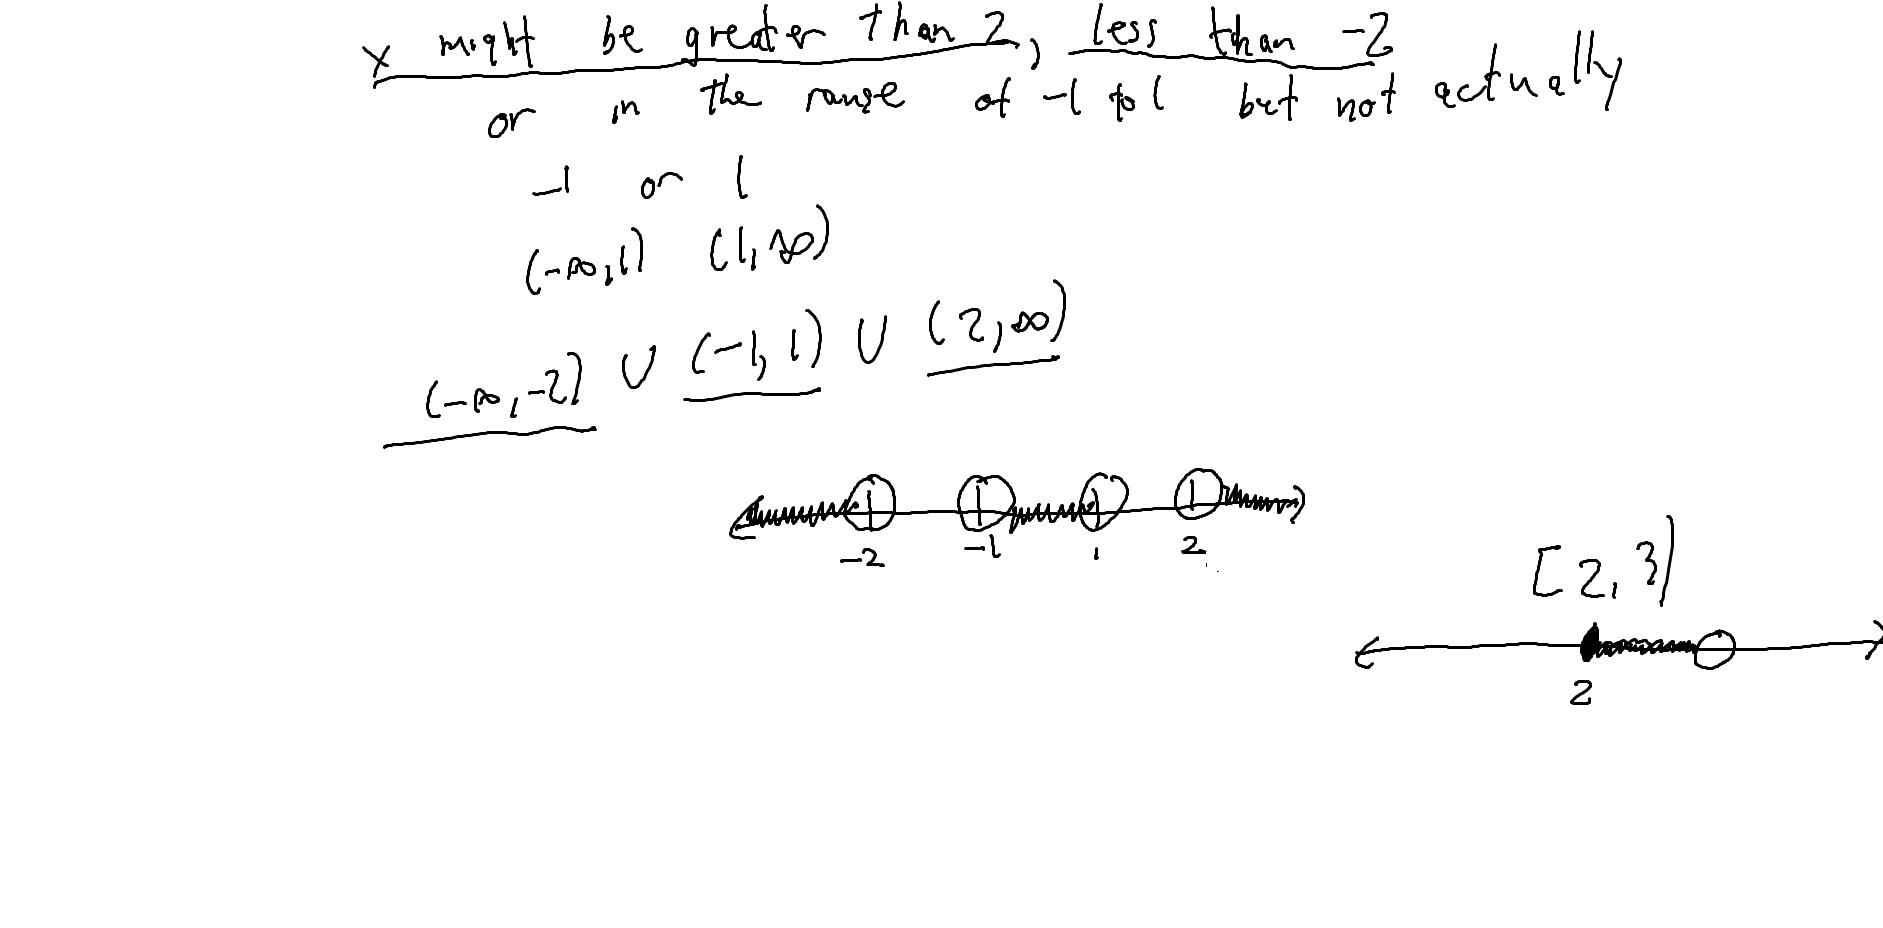 x might be greater than 2, less than -2
or in the range of -1 to 1 but not actually
-1 or 1
(-∞, 1) (1, ∞)
(-∞, -2) ∪ (-1, 1) ∪ (2, ∞)
-2 -1 1 2
[2, 3)
2